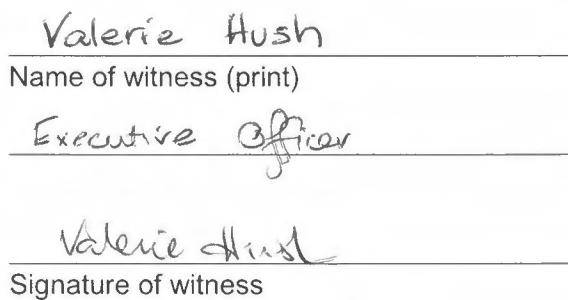 Valerie Hush
Name of witness (print)
Executive Officer
Valerie Hush
Signature of witness